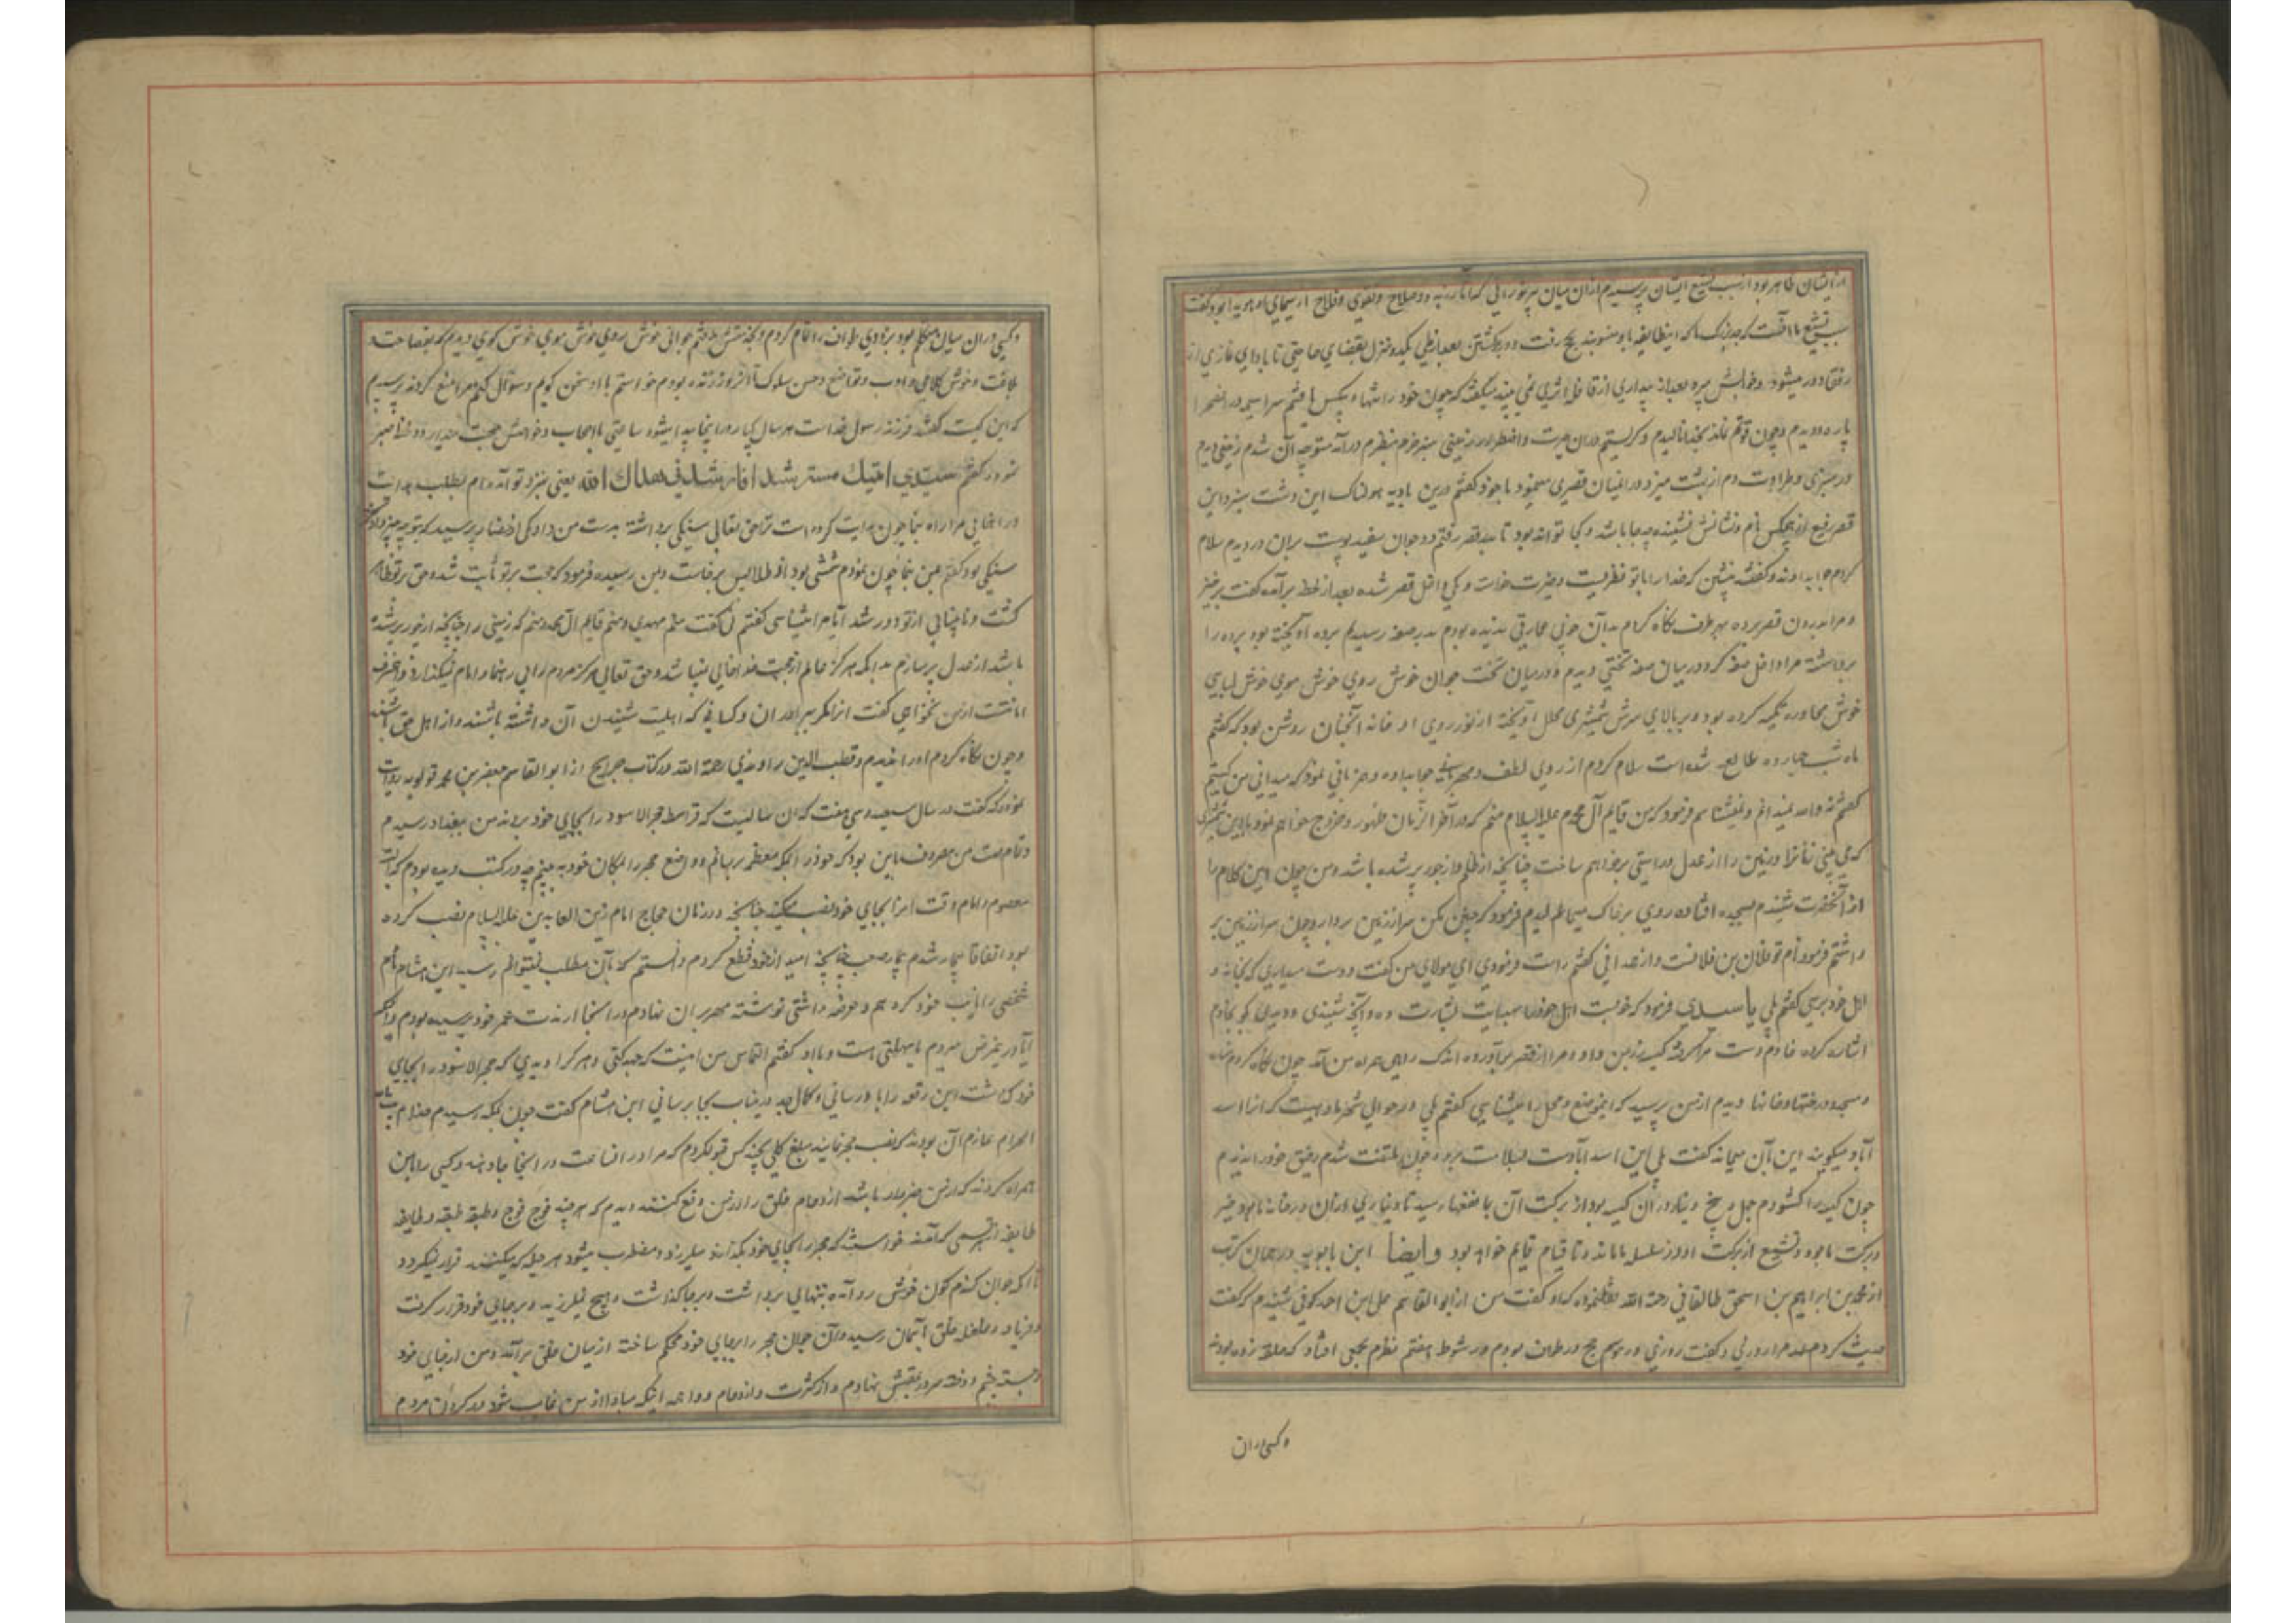 ازیشان ظاهر بود از سبب تشیع ایشان پرسیدم ازان میان پیر نورانی که آثار زهد و صلاح و تقوی و فلاح از سیمای او هویدا بود گفت
سبب تشیع ما آنست که جد بزرگ ما که این طایفه باو منسوبند بحج رفت و در برگشتن بعد از طی یکدو منزل بقضای حاجتی تا بادای نمازی از
رفقا دور میشود و خوابش میبرد بعد از بیداری از قافله اثری نمی بیند میگفته که چون خود را تنها و بیکس یافتم سراسیمه در آن صحرا
پاره دویدم و چون قوتم نماند بخدا نالیدم و گریستم دران حیرت و اضطرار زمینی سبز خرم بنظرم در آمد متوجه آن شدم زمینی دیدم
در سبزی و طراوت دم از بهشت میزد و در آنمیان قصری مینمود با خود گفتم درین بادیه هولناک این دشت سبز و این
قصر رفیع از هیچکس نام و نشانش نشنیده چه جا باشد و کجا تواند بود تا بدر قصر رفتم دو جوان سفید پوست بران در دیدم سلام
کردم جواب دادند و گفتند بنشین که خدا را با تو نظریست و خیرت خواست و یکی داخل قصر شده بعد از لحظه برآمد گفت برخیز
و مرا بدرون قصر برده بهر طرف نگاه کردم بدان خوبی عمارتی ندیده بودم بدر صفه رسیدیم پرده آویخته بود پرده را
برداشته مرا داخل صفه کرد در میان صفه تختی دیدم و در میان تخت جوان خوش روی خوش موی خوش لباسی
خوش محاوره تکیه کرده بود و بر بالای سرش شمشیری محلل آویخته از نور روی او خانه آنچنان روشن بود که گفتم
ماه شب چهارده طالع شده است سلام کردم از روی لطف و مهربانی جواب داده و مهربانی نمود که میدانی من کیستم
گفتم نه والله نمیدانم و نمیشناسم فرمود که من قایم آل محمدم علیه السلام منم که در آخر الزمان ظهور و خروج خواهم نمود با این شمشیری
که می بینی زمانرا و زمین را از عدل و راستی پر خواهم ساخت چنانچه از ظلم و از جور پر شده باشد و من چون این کلام را
از آنحضرت شنیدم بسجده افتاده روی بر خاک میمالیدم فرمود که چنین مکن سر از زمین بردار و چون سر از زمین بر
داشتم فرمود نام تو فلان بن فلانست و از همدانی گفتم راست فرمودی ای مولای من گفت دوست میداری که بخانه و
اهل خود برسی گفتم بلی یا سیدی فرمود که خوبست اهل خود را بهدایت بشارت ده و آنچه شنیدی و دیدی بگو بخادم
اشاره کرده خادم دست مرا گرفته کیسه زر بمن داد و مرا از قصر برآورده اندک راهی همراه من آمد چون نگاه کردم مناره
و مسجد و درختها و خانها دیدم از من پرسید که این موضع و محل را میشناسی گفتم بلی در حوالی شهر ما دهیست که آنرا اسد
آباد میگویند این بآن میماند گفت بلی این اسد آبادست بسلامت برو و چون ملتفت شدم رفیق خود را ندیدم
چون کیسه را گشودم چهل و پنج دینار در آن کیسه بود از برکت آن بما نفعها رسید تا دیناری ازان در خانه ما بود خیر
و برکت با ما بود و تشیع از برکت او در سلسله ما ماند و تا قیام قایم خواهد بود وایضا ابن بابویه در همان کتاب
از محمد بن ابراهیم بن اسحق طالقانی رحمة الله نقل نموده که او گفت من از ابو القاسم علی ابن احمد کوفی شنیدم که گفت
حدیث کردم ازدی و گفت روزی در موسم حج در طواف بودم در شوط هفتم نظرم بجمعی افتاد که حلقه زده بودند
و کسی دران
و کسی دران میان متکلم بود بزودی طواف را تمام کردم و بخدمتش رفتم جوانی خوش روی خوش موی خوش گوی دیدم که بفصاحت و
بلاغت و خوش کلامی و ادب و تواضع و حسن سلوک تا آنروز ندیده بودم خواستم با او سخن گویم و سؤال کنم مرا منع کردند پرسیدم
که این کیست گفتند فرزند رسول خداست هر سال یکبار در اینجا پیدا میشود ساعتی با اصحاب و خواصش صحبت میدارد
گفتم سیدی اتیتك مسترشدا فارشدنی هداك الله یعنی بنزد تو آمده ام بطلب هدایت
و راهنمایی مرا راه بنما چون هدایت کرده است ترا حق تعالی سنگی برداشته بدست من داد یکی از حضار پرسید که بتو چه چیز داد گفتم
سنگی بود گفتم بمن بنما چون نمودم خشتی بود از طلا پس برخاست و بمن رسیده فرمود که حجت بر تو ثابت شد و حق بر تو ظاهر
گشت و نابینایی از تو دور شد آیا مرا میشناسی گفتم نه گفت منم مهدی و منم قایم آل محمد و منم که زمین را چنانچه از جور پر شده
باشد از عدل پر سازم بدانکه هرگز عالم از حجت خدا خالی نمیباشد و حق تعالی هرگز مردم را بی رهنما و امام نمیگذارد و این حرف
امانتست از من نخواهی گفت آنرا مگر ببرادران و کسانی که اهلیت شنیدن آن داشته باشند و از اهل حق باشند
و چون نگاه کردم او را ندیدم و قطب الدین راوندی رحمة الله در کتاب جرایح از ابو القاسم جعفر بن محمد قولویه روایت
نموده که گفت در سال سیصد و سی و هفت که آن سالیست که قرامطه حجر الاسود را بجای خود بردند من ببغداد رسیدم
و تمام همت من مصروف باین بود که خود را بمکه معظمه رسانم و واضع حجر را بمکان خود به بینم چه در کتب دیده بودم که البته
معصوم و امام وقت آنرا بجای خود نصب میکند چنانچه در زمان حجاج امام زین العابدین علیه السلام نصب کرده
بود اتفاقا بیمار شدم بیماری صعب چنانچه امید از خود قطع کردم دانستم که بآن مطلب نمیتوانم رسید ابن هشام نام
شخصی را نایب خود کردم و عرضه داشتی نوشته مهر بران نهادم و در آنجا از مدت عمر خود پرسیده بودم و آنکه
آیا درین مرض میروم یا مهلتی هست و باو گفتم التماس من اینست که جهد کنی و هر کرا دیدی که حجر الاسود را بجای
خود گذاشت این رقعه را باو رسانی و کمال جد درین باب بجا برسانی ابن هشام گفت چون بمکه رسیدم خدام بیت
الحرام عازم آن بودند که نصب حجر نمایند مبلغ کلی بچند کس قبول کردم که مرا در آن ساعت در آنجا جا دهند و کسی را با من
همراه کردند که از من خبردار باشد ازدحام خلق را از من دفع کنند دیدم که هر چند فوج فوج و طبقه طبقه و طایفه
طایفه از هر قسمی که آمدند خواستند که حجر را بجای خود بگذارند میلرزد و مضطرب میشود هر حیله که میکنند قرار نمیگیرد
تا آنکه جوان گندم گون خوش رو آمده بتنهایی برداشت و برجا گذاشت و هیچ نلرزید و برجای خود قرار گرفت
و فریاد و غلغله خلق بآسمان رسید و آن جوان حجر را برجای خود محکم ساخته از میان خلق برآمد و من از جای خود
جسته چشم دوخته سر در عقبش نهادم و از کثرت و ازدحام و واهمه آنکه مبادا از من غایب شود دور کردن مردم